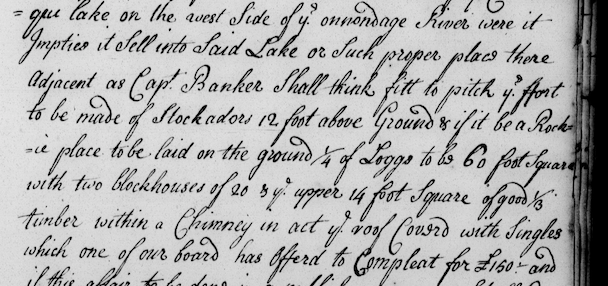 = gui lake on the west Side of yᵉ onnondage River were it
Impties it Self into Said Lake or Such proper place there
Adjacent as Capᵗ. Banker Shall think fitt to pitch yᵉ ffort
to be made of Stockadors 12 foot above Ground & if it be a Rock=
=ie place to be laid on the ground 1/4 of Loggs to be 60 foot Square
with two blockhouses of 20 & yᵉ upper 14 foot Square of good 1/3
timber within a Chimney in act yᵉ roof Coverd with Singles
which one of our board has Offerd to Compleat for £150:- and
if this affair to be done in a